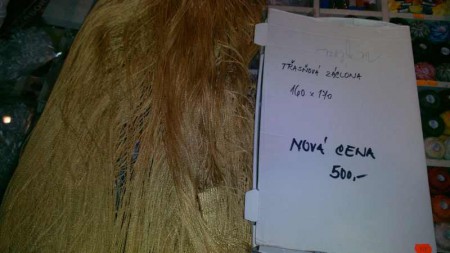 TŘÁSŇOVÁ ZÁCLONA
160 x 170
NOVÁ CENA
500,-